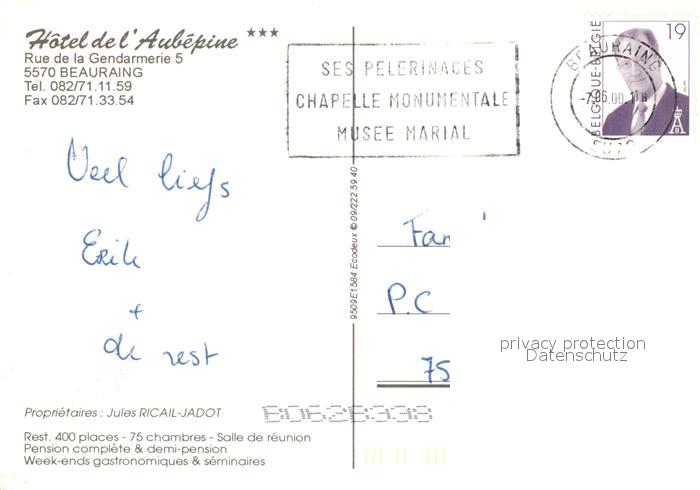 Hôtel de l'Aubépine ***
Rue de la Gendarmerie 5
5570 BEAURAING
Tel. 082/71.11.59
Fax 082/71.33.54
SES PELERINAGES
CHAPELLE MONUMENTALE
MUSEE MARIAL
BEAURAING
-7.06.00.11H
BELGIQUE-BELGIË
19
Veel liefs
Erik
+
de rest
9509E1584 Ecodeux © 09/222.59.40
Fam
P.C
75
privacy protection
Datenschutz
Propriétaires : Jules RICAIL-JADOT
Rest. 400 places - 75 chambres - Salle de réunion
Pension complète & demi-pension
Week-ends gastronomiques & séminaires